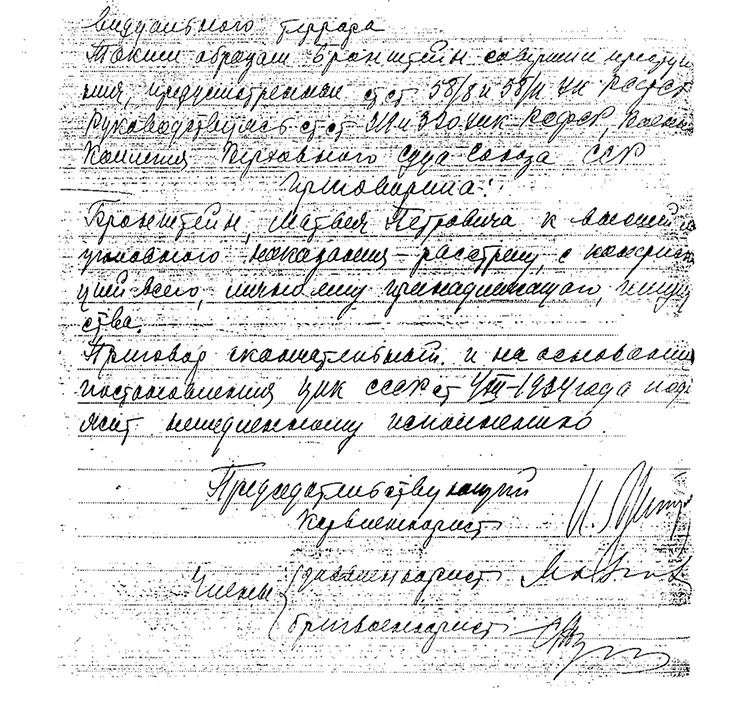 видуального террора
Таким образом Бронштейн совершил преступле
ния, предусмотренные ст.ст. 58/8 и 58/11 УК РСФСР
Руководствуясь ст.ст. 319 и 320 УПК РСФСР, Военн
Коллегия Верховного Суда Союза ССР
Приговорила:
Бронштейн, Матвея Петровича к высшей
уголовного наказания – расстрелу, с конфиска
цией всего, лично ему принадлежащего, имущ
ства.
Приговор окончательный и на основании
постановления ЦИК СССР от 1/XII-1934 года подл
жит немедленному исполнению.
Председательствующий
Корвоенюрист
Члены
диввоенюрист
бригвоенюрист